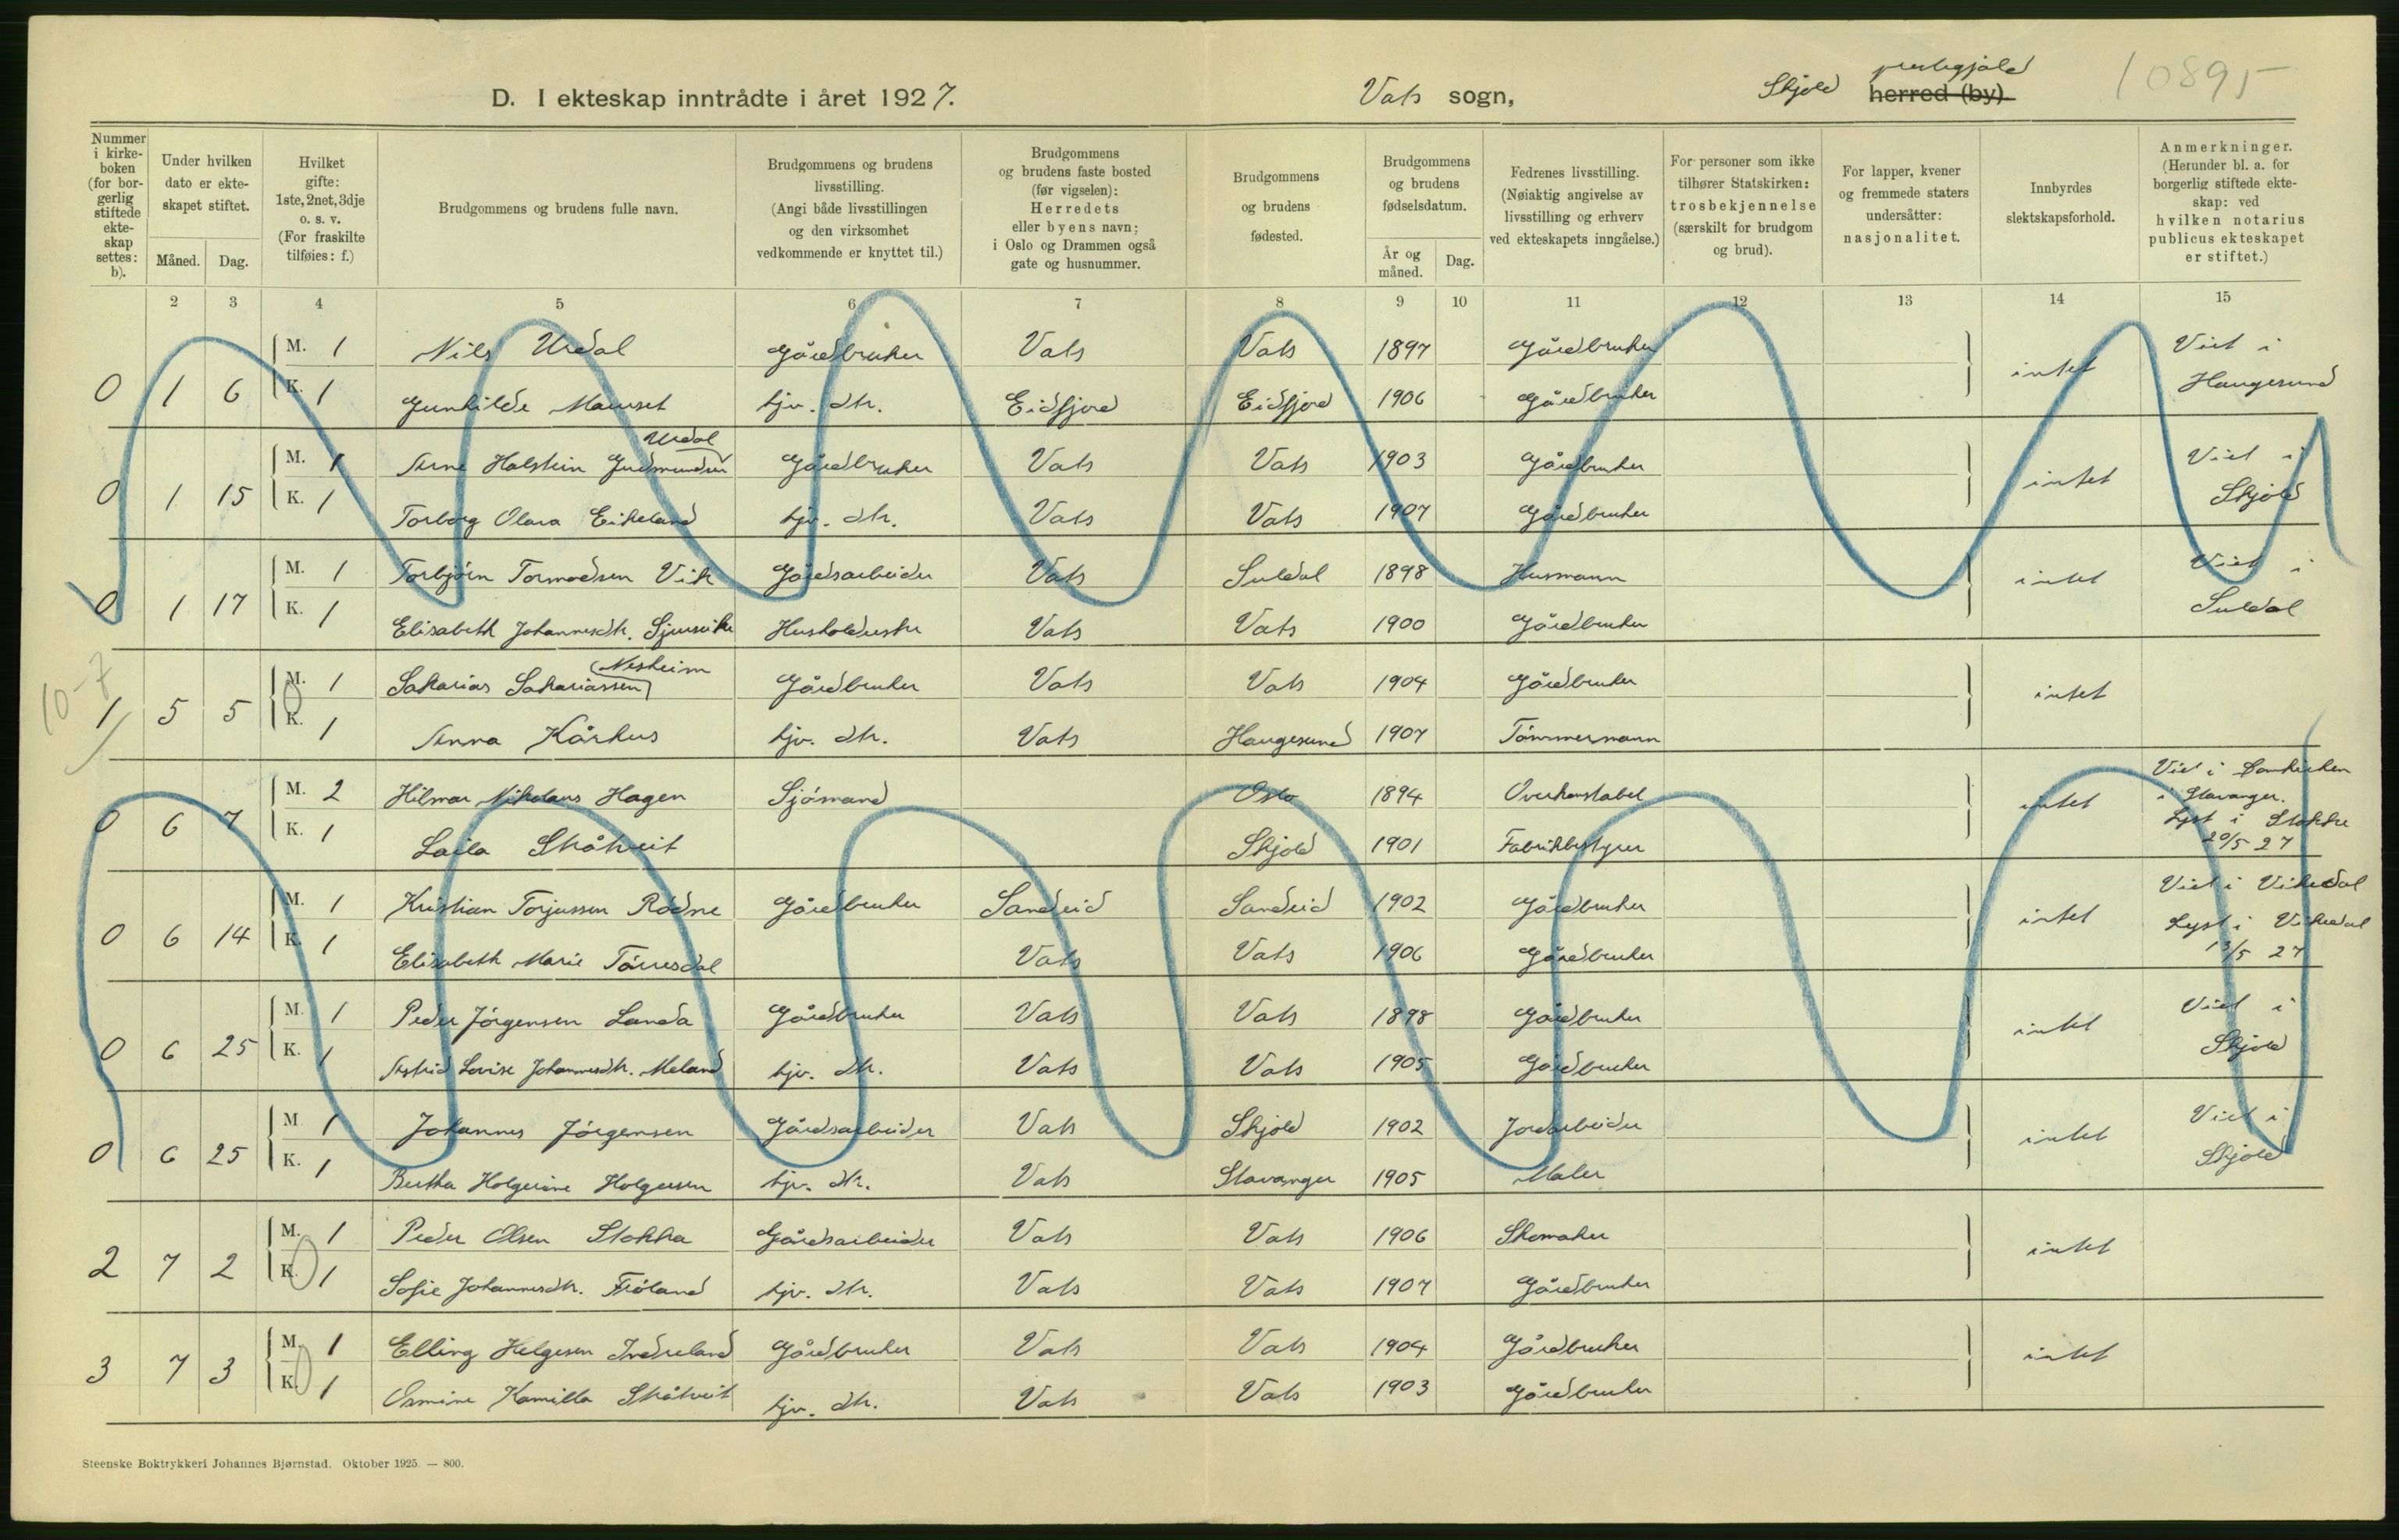 D. I ekteskap inntrådte i året 1927. Vats sogn, Skjold herred (by). prestegjeld 10895
Nummer i kirkeboken (for borgerlig stiftede ekteskap settes: b).
Under hvilken dato er ekteskapet stiftet.
Måned. Dag.
Hvilket gifte: 1ste, 2net, 3dje o. s. v. (For fraskilte tilføies: f.)
Brudgommens og brudens fulle navn.
Brudgommens og brudens livsstilling. (Angi både livsstillingen og den virksomhet vedkommende er knyttet til.)
Brudgommens og brudens faste bosted (før vigselen): Herredets eller byens navn; i Oslo og Drammen også gate og husnummer.
Brudgommens og brudens fødested.
Brudgommens og brudens fødselsdatum.
År og måned. Dag.
Fedrenes livsstilling. (Nøiaktig angivelse av livsstilling og erhverv ved ekteskapets inngåelse.)
For personer som ikke tilhører Statskirken: trosbekjennelse (særskilt for brudgom og brud).
For lapper, kvener og fremmede staters undersåtter: nasjonalitet.
Innbyrdes slektskapsforhold.
Anmerkninger. (Herunder bl. a. for borgerlig stiftede ekteskap: ved hvilken notarius publicus ekteskapet er stiftet.)
2 3 4 5 6 7 8 9 10 11 12 13 14 15
M. 1 Nils Urdal Gårdbruker Vats Vats 1897 Gårdbruker Viet i
0 1 6 K. 1 Gunhilde Mauset hjv. dtr. Eidfjord Eidfjord 1906 Gårdbruker intet Haugesund
Urdal
M. 1 Arne Halstein Gudmundsen Gårdbruker Vats Vats 1903 Gårdbruker Viet i
0 1 15 K. 1 Torborg Olara Eikeland hjv. dtr. Vats Vats 1907 Gårdbruker intet Skjold
M. 1 Torbjörn Tormodsen Vik Gårdsarbeider Vats Suldal 1898 Husmann Viet i
0 1 17 K. 1 Elisabeth Johannesdtr. Sjursvike Husholderske Vats Vats 1900 Gårdbruker intet Suldal
10-7
Nesheim
M. 1 Sakarias Sakariassen Gårdbruker Vats Vats 1904 Gårdbruker
1 5 5 K. 1 Anna Kårhus hjv. dtr. Vats Haugesund 1907 Tömmermann intet
M. 2 Hilmar Nikolaus Hagen Sjömand Oslo 1894 Overkonstabel Viet i Domkirken
i Stavanger.
0 6 7 K. 1 Laila Skåtveit Skjold 1901 Fabrikbestyrer intet Lyst i Stokke
20/5 27
M. 1 Kristian Torjussen Rödne Gårdbruker Sandeid Sandeid 1902 Gårdbruker Viet i Vikedal
0 6 14 K. 1 Elisabeth Marie Törresdal Vats Vats 1906 Gårdbruker intet Lyst i Vikedal
13/5 27
M. 1 Peder Jörgensen Landa Gårdbruker Vats Vats 1898 Gårdbruker Viet i
0 6 25 K. 1 Astrid Lovise Johannesdtr. Meland hjv. dtr. Vats Vats 1905 Gårdbruker intet Skjold
M 1 Johannes Jörgensen Gårdsarbeider Vats Skjold 1902 Jordarbeider Viet i
0 6 25 K. 1 Bertha Holgerine Holgersen hjv. dtr. Vats Stavanger 1905 Maler intet Skjold
M. 1 Peder Olsen Stokka Gårdsarbeider Vats Vats 1906 Skomaker
2 7 2 K. 1 Sofie Johannesdtr. Fröland hjv. dtr. Vats Vats 1907 Gårdbruker intet
M. 1 Elling Helgesen Indreland Gårdbruker Vats Vats 1904 Gårdbruker
3 7 3 K. 1 Osmine Kamilla Skåtveit hjv. dtr. Vats Vats 1903 Gårdbruker intet
Steenske Boktrykkeri Johannes Bjørnstad. Oktober 1925. — 800.